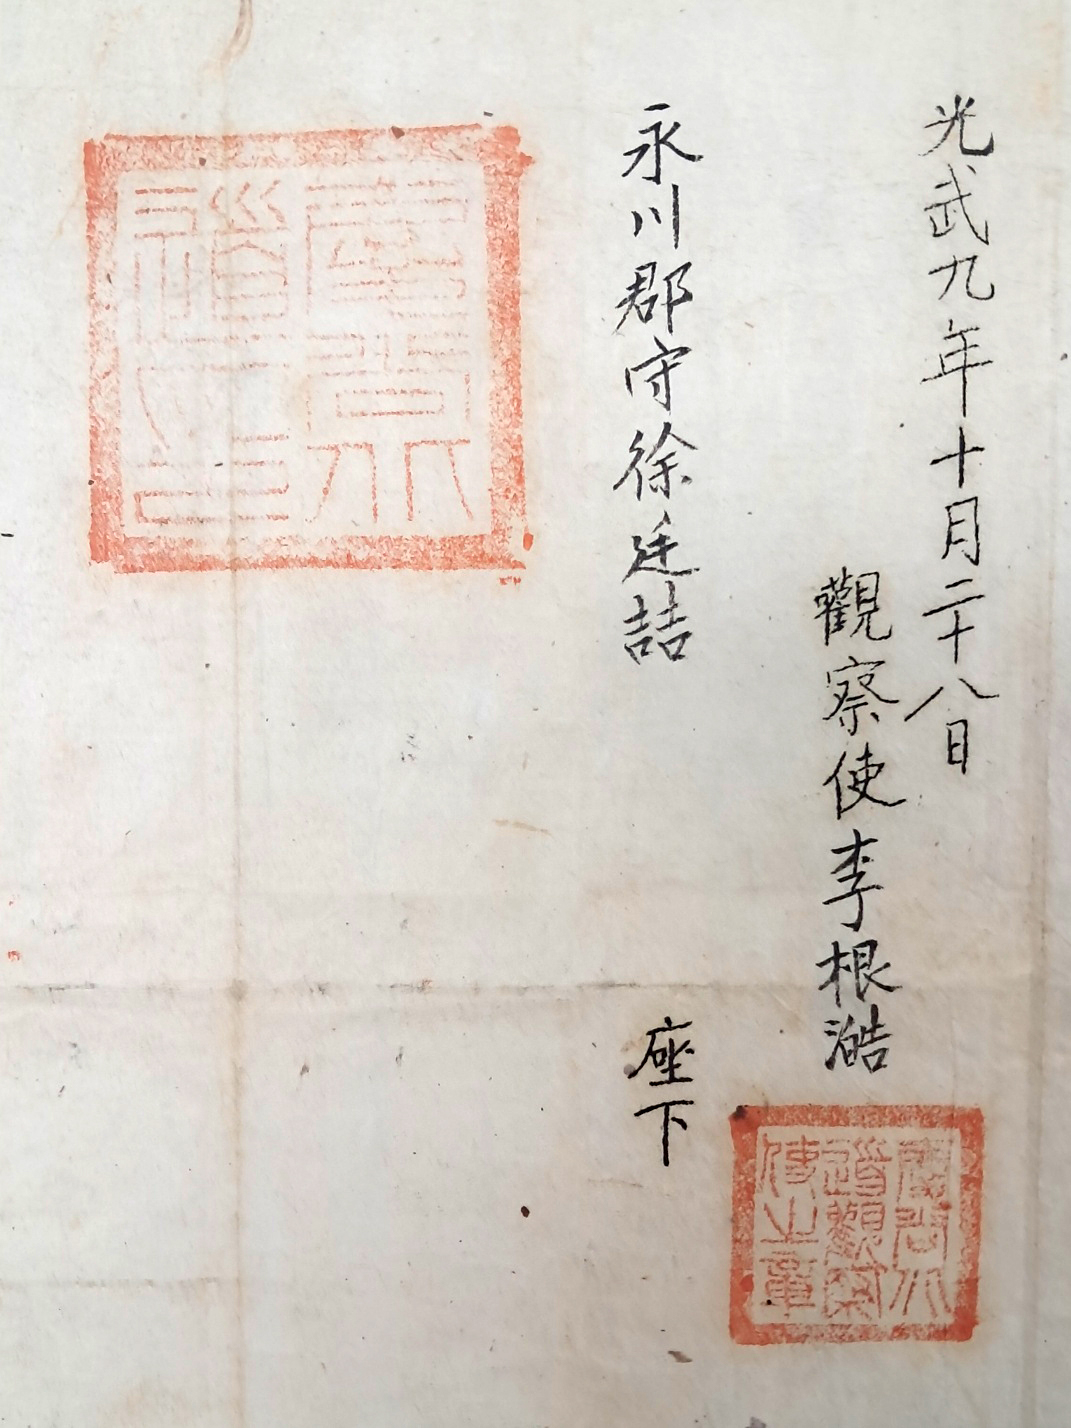 光武九年十月二十八日
觀察使李根澔
慶尙北
道觀察
使之章
永川郡守徐廷喆 座下
慶尙北